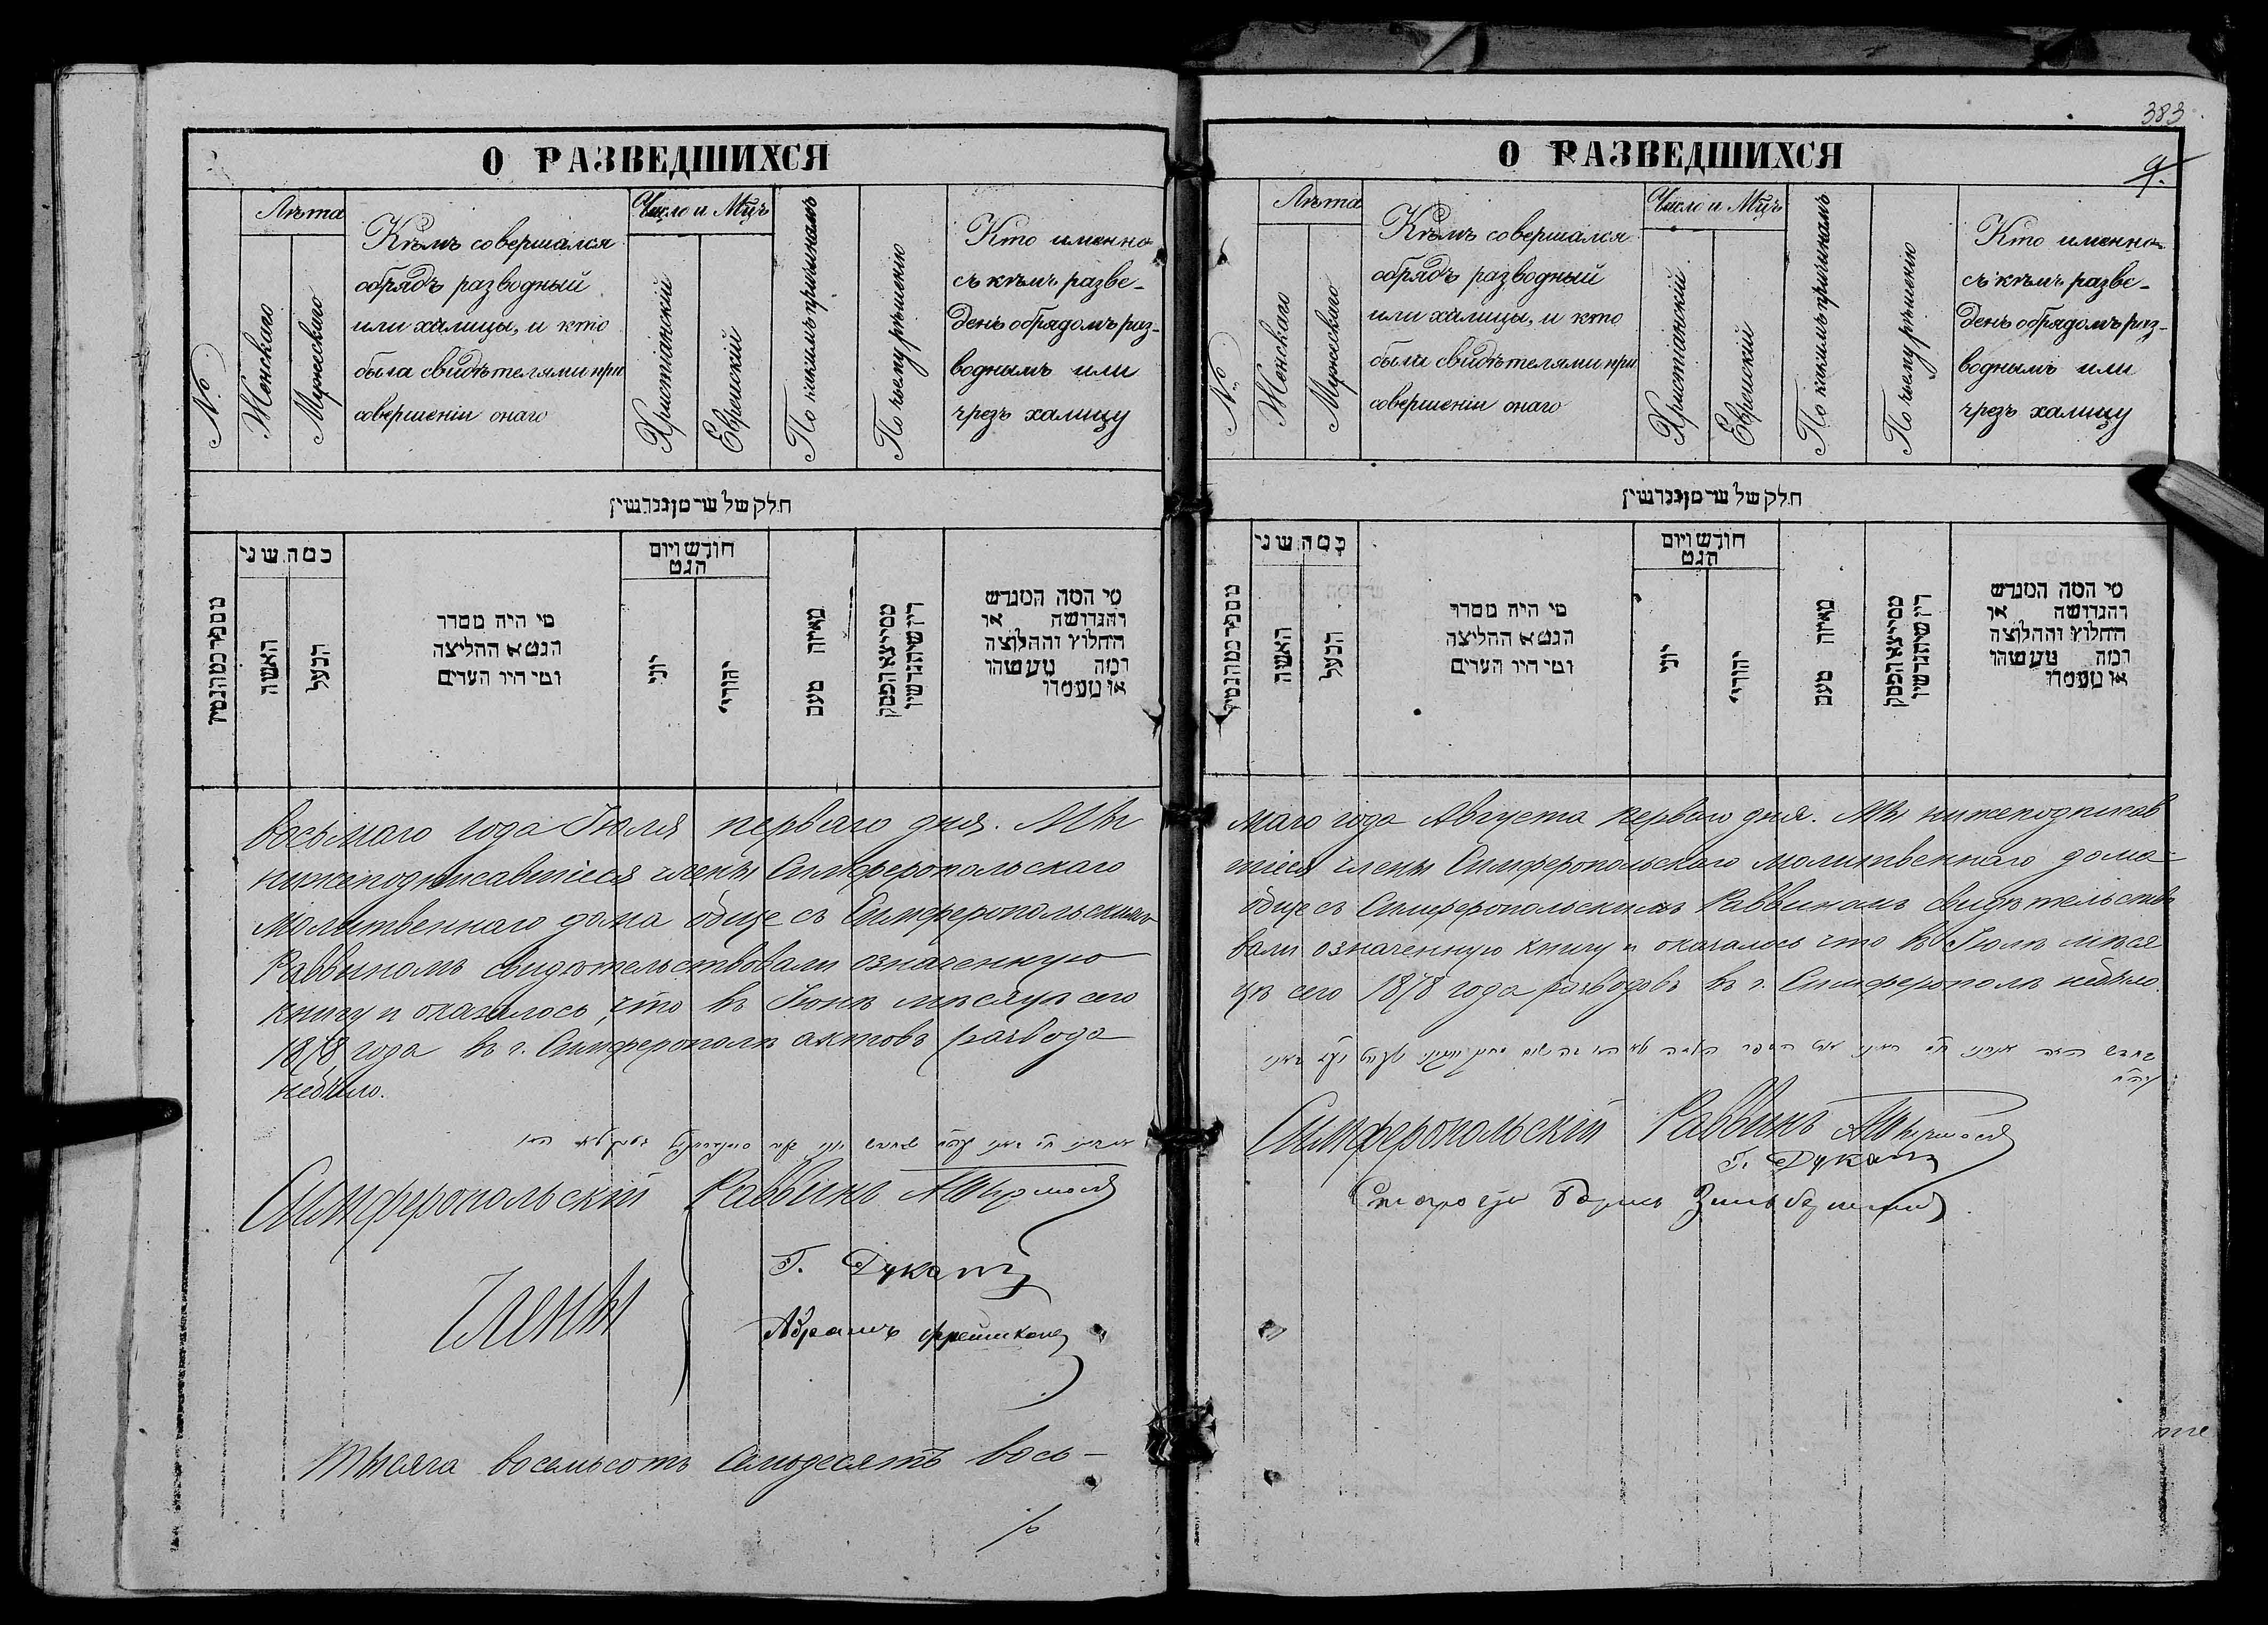 О РАЗВЕДШИХСЯ
№
Лѣта
Женскаго
Мужескаго
Кѣмъ совершался
обрядъ разводный
или халицы, и кто
были свидѣтелями при
совершеніи онаго
Число и Мцъ
Христіанскій
Еврейскій
По какимъ причинамъ
По чьему рѣшенію
Кто именно
съ кѣмъ разве-
денъ обрядомъ раз-
воднымъ или
чрезъ халицу
חלק של
כמה שני
האשה
הבעל
מי היה מסדר
הגט או החליצה
ומי היו העדים
חודש ויום
הגט
יוני
יהודי
מאיזה טעם
מי המה המגרש
והגרושה או
החלוץ והחלוצה
ומה מעשהו
או מעמדו
восьмаго года Іюля перваго дня. Мы
нижеподписавшіеся члены Симферопольскаго
Молитвеннаго дома обще съ Симферопольскимъ
Раввиномъ свидѣтельствовали означенную
книгу и оказалось, что въ Іюнѣ мѣсяцѣ сего
1878 года въ г. Симферополѣ актовъ развода
небыло.
Симферопольскій Раввинъ
Члены
Г. Дукатъ
Абрамъ
Тысяча восемьсотъ семдесятъ вось-
383
9.
О РАЗВЕДШИХСЯ
№
Лѣта
Женскаго
Мужескаго
Кѣмъ совершался
обрядъ разводный
или халицы, и кто
были свидѣтелями при
совершеніи онаго
Число и Мцъ
Христіанскій
Еврейскій
По какимъ причинамъ
По чьему рѣшенію
Кто именно
съ кѣмъ разве-
денъ обрядомъ раз-
воднымъ или
чрезъ халицу
חלק של
כמה שני
האשה
הבעל
מי היה מסדר
הגט או החליצה
ומי היו העדים
חודש ויום
הגט
יוני
יהודי
מאיזה טעם
מי המה המגרש
והגרושה או
החלוץ והחלוצה
ומה מעשהו
או מעמדו
маго года Августа перваго дня. Мы нижеподписав
шіеся члены Симферопольскаго молитвеннаго дома
обще съ Симферопольскимъ Раввиномъ свидѣтельство
вали означенную книгу и оказалось что въ Іюлѣ мѣся
цѣ сего 1878 года разводовъ въ г. Симферополѣ небыло.
Симферопольскій Раввинъ
Г. Дукатъ
Староста